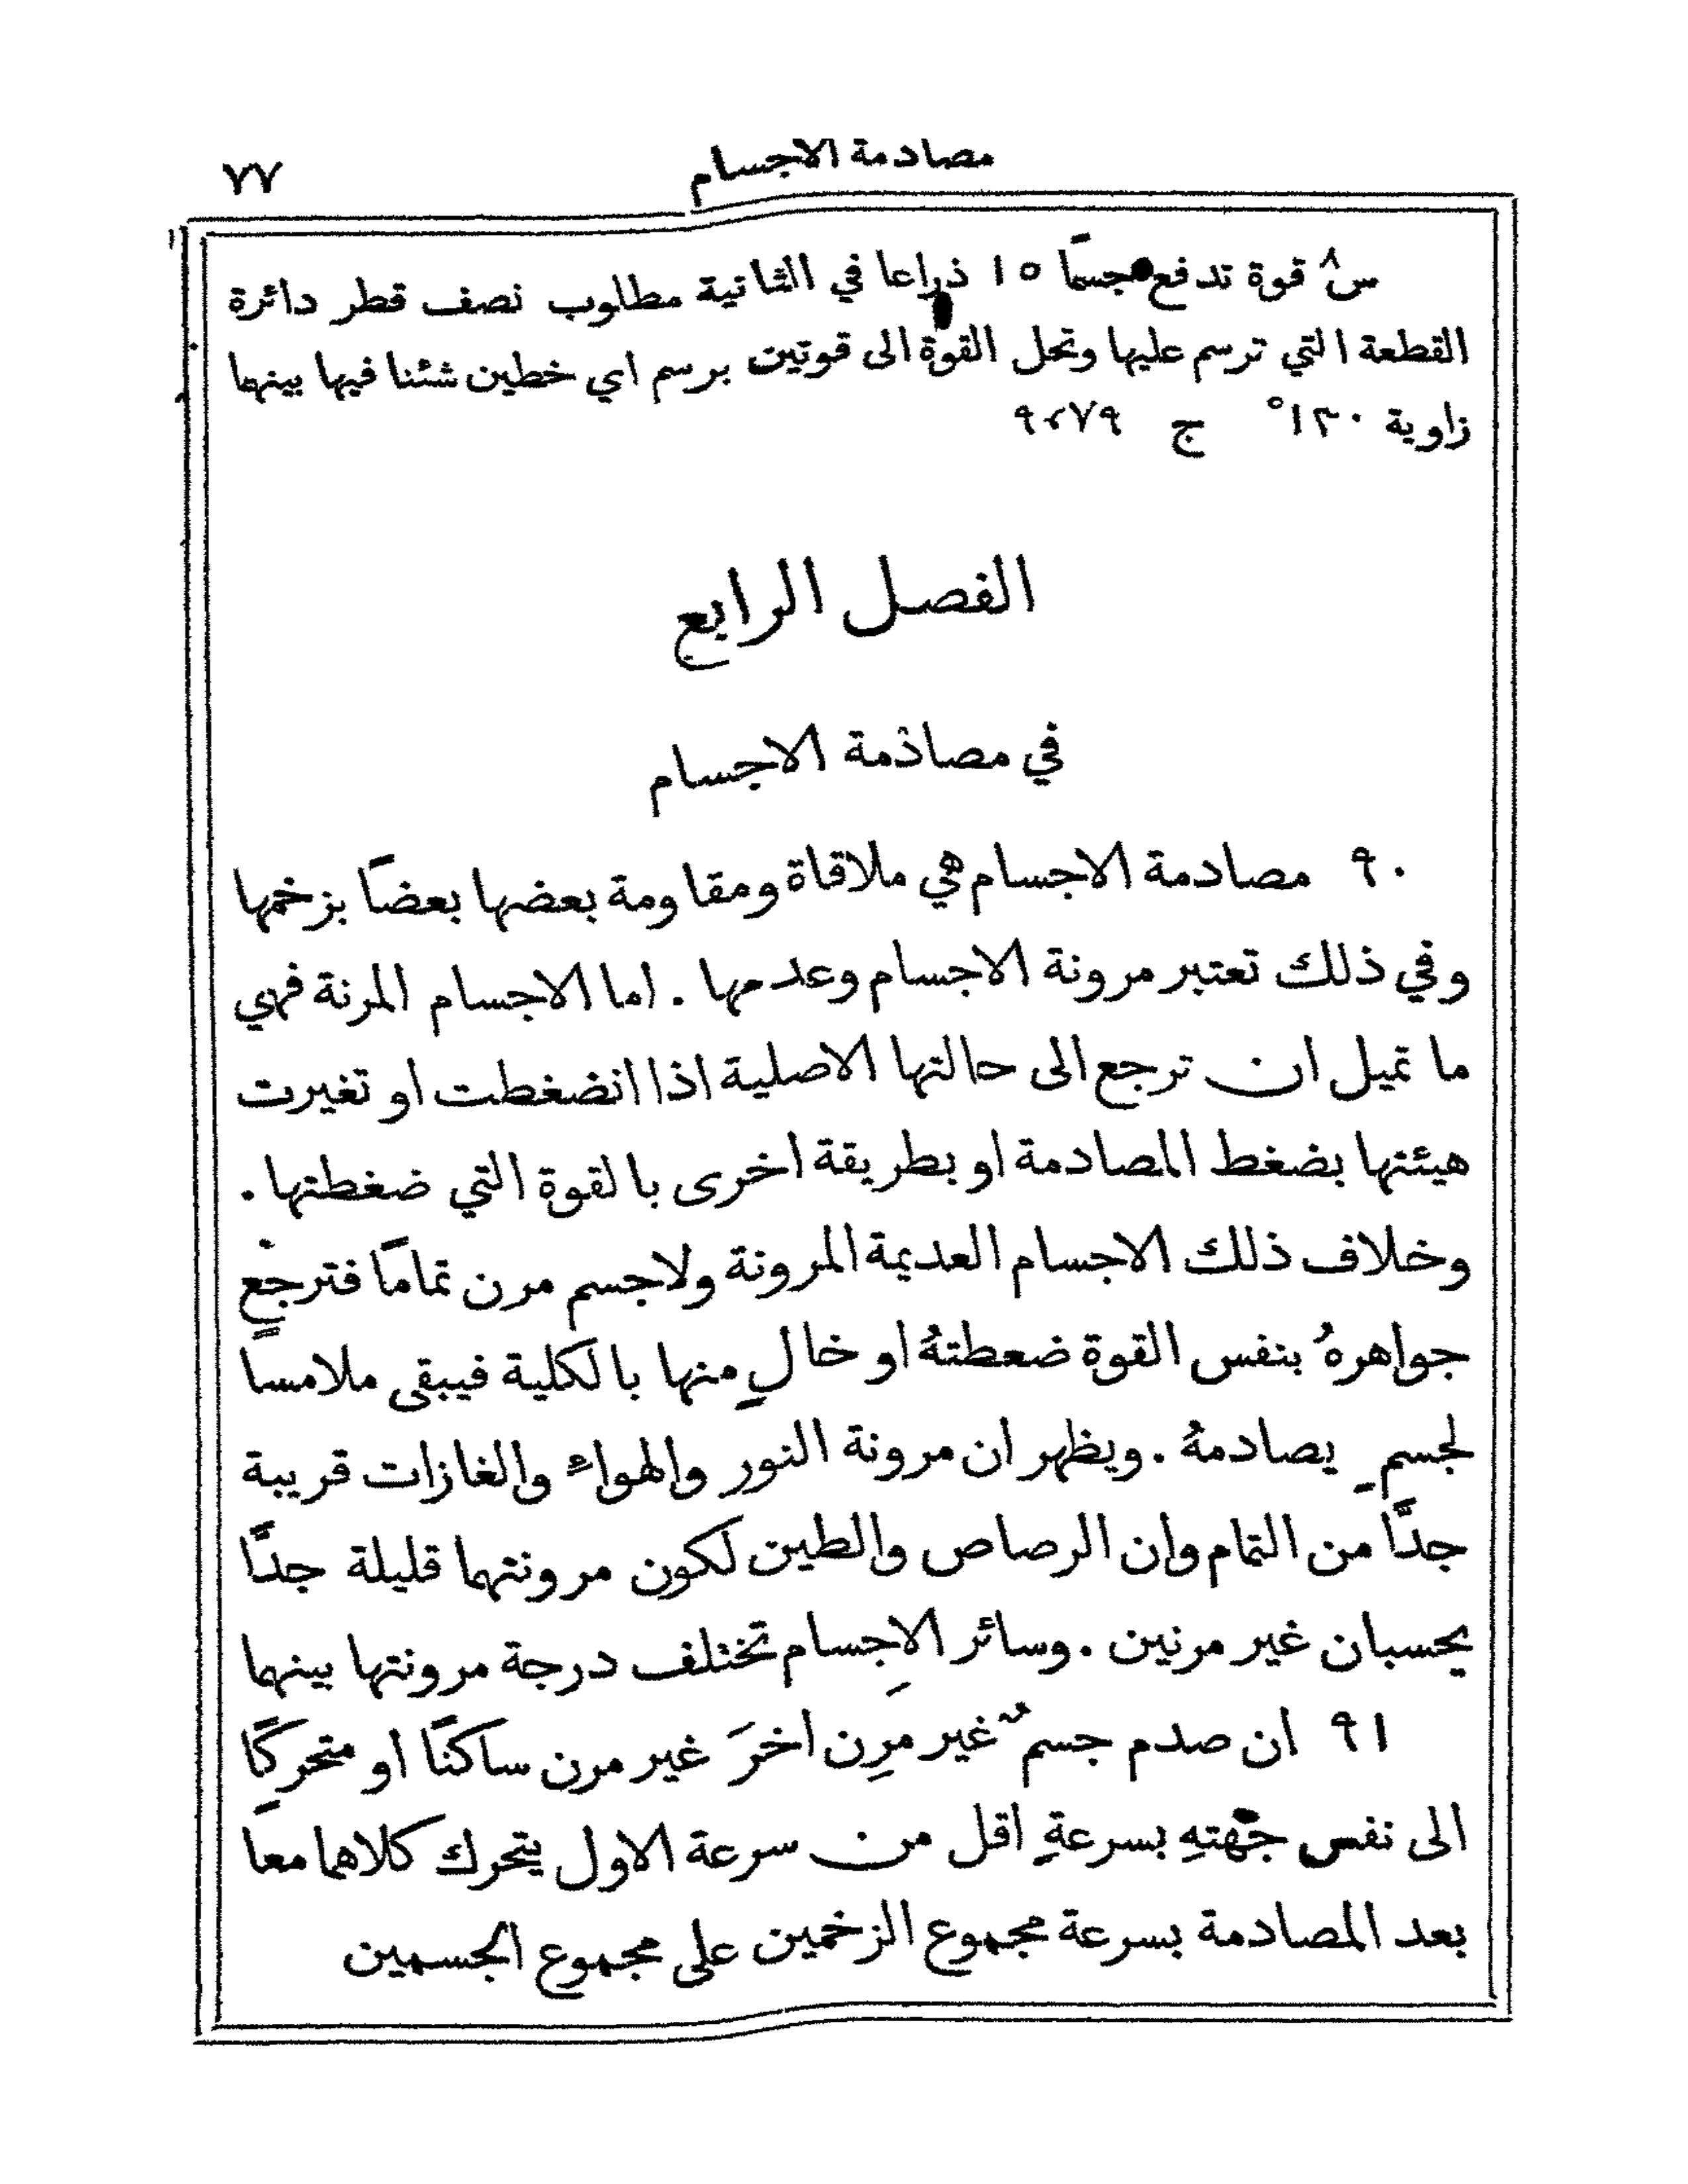 مصادمة الاجسام ٧٧
س٨ قوة تدفع جسمًا ١٥ ذراعا في الثانية مطلوب نصف قطر دائرة
القطعة التي ترسم عليها وتحل القوة الى قوتين برسم اي خطين شئنا فيها بينهما
زاوية ١٣٠° ج ٩٫٧٩
الفصل الرابع
في مصادمة الاجسام
٩٠ مصادمة الاجسام هي ملاقاة ومقاومة بعضها بعضًا بزخمها
وفي ذلك تعتبر مرونة الاجسام وعدمها . اما الاجسام المرنة فهي
ما تميل ان ترجع الى حالتها الاصلية اذا انضغطت او تغيرت
هيئتها بضغط المصادمة او بطريقة اخرى بالقوة التي ضغطتها .
وخلاف ذلك الاجسام العديمة المرونة ولا جسم مرن تمامًا فترجع
جواهرهُ بنفس القوة ضعطتهُ او خالٍ منها بالكلية فيبقى ملامسًا
لجسمٍ يصادمهُ . ويظهر ان مرونة النور والهواء والغازات قريبة
جدًّا من التمام وان الرصاص والطين لكون مرونتهما قليلة جدًّا
يحسبان غير مرنين . وسائر الاجسام تختلف درجة مرونتها بينهما
٩١ ان صدم جسمٌ غير مَرِن اخرَ غير مرن ساكنًا او متحركًا
الى نفس جهتهِ بسرعةٍ اقل من سرعة الاول يتحرك كلاهما معًا
بعد المصادمة بسرعة مجموع الزخمين على مجموع الجسمين